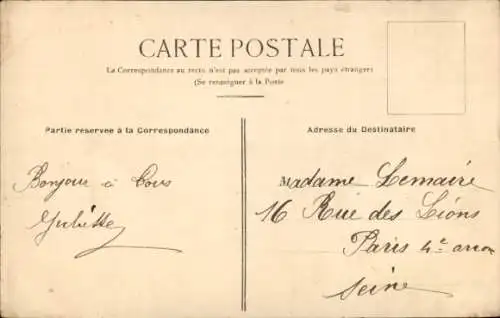 CARTE POSTALE
La Correspondance au recto n'est pas acceptée par tous les pays étrangers
(Se renseigner à la Poste
Partie reservee à la Correspondance
Adresse du Destinataire
Bonjour à Tous
Juliette
Madame Lemaire
16 Rue des Lions
Paris 4e arron
Seine